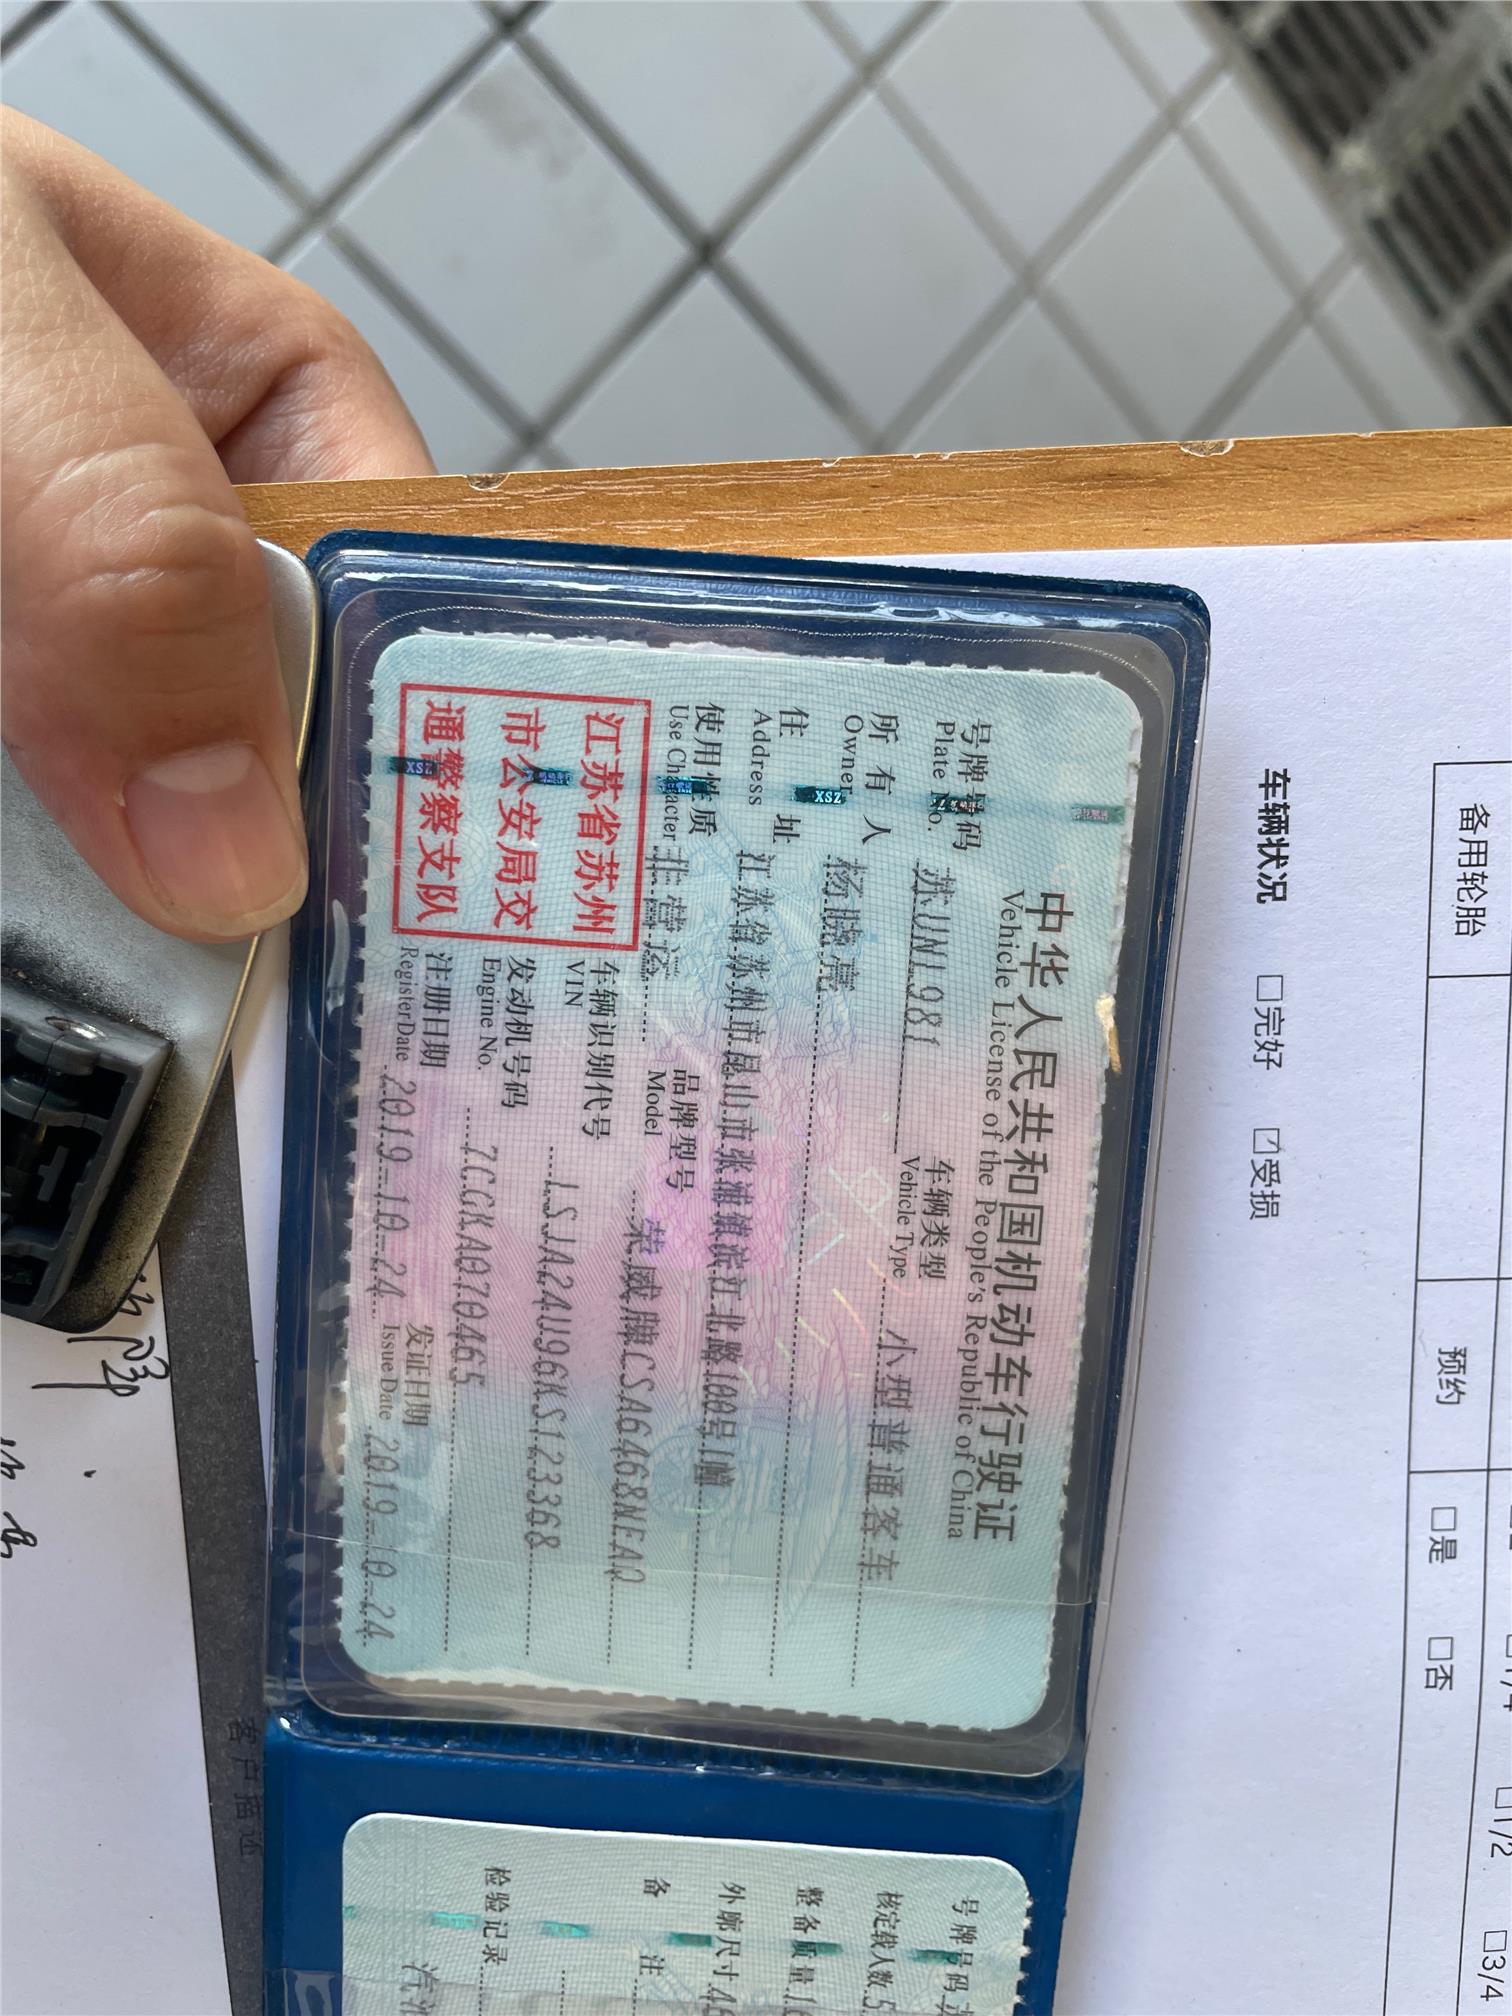 中华人民共和国机动车行驶证
Vehicle License of the People's Republic of China
号牌号码
Plate No.
苏UNL981
车辆类型
Vehicle Type
小型普通客车
所有人
Owner
杨晓亮
住址
Address
江苏省苏州市昆山市张浦镇滨江北路100号1幢
使用性质
Use Character
非营运
品牌型号
Model
荣威牌CSA6468NEAQ
江苏省苏州
市公安局交
通警察支队
车辆识别代号
VIN
LSJA24U96KS123368
发动机号码
Engine No.
7CGKA070465
注册日期
Register Date
2019-10-24
发证日期
Issue Date
2019-10-24
号牌号码
核定载人数 5
整备质量
外廓尺寸
备注
检验记录
备用轮胎
预约
□是 □否
□1/2
□3/4
车辆状况 □完好 ☑受损
客户描述